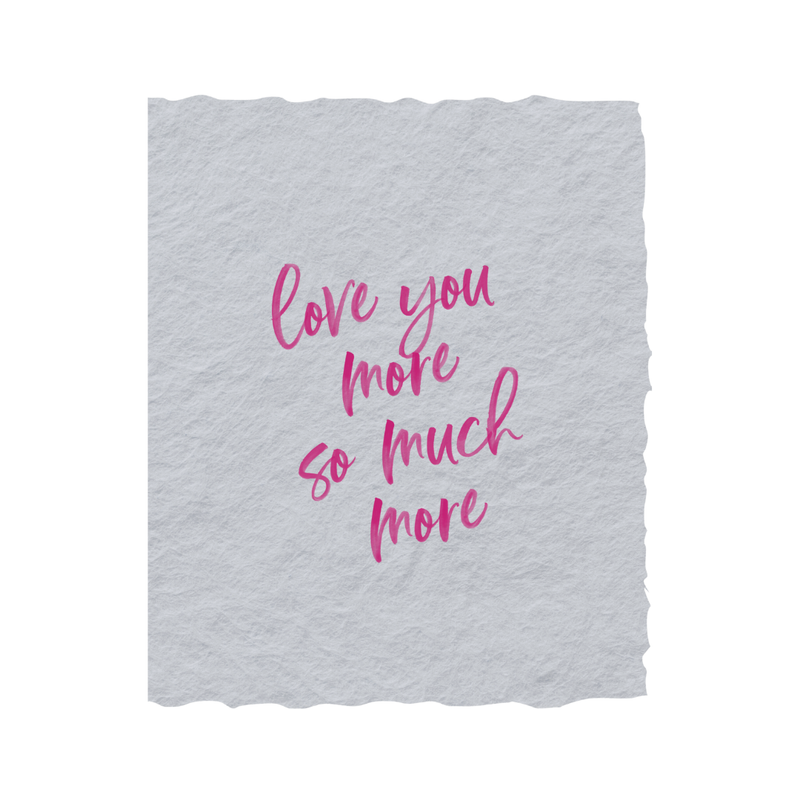 love you
more
so much
more